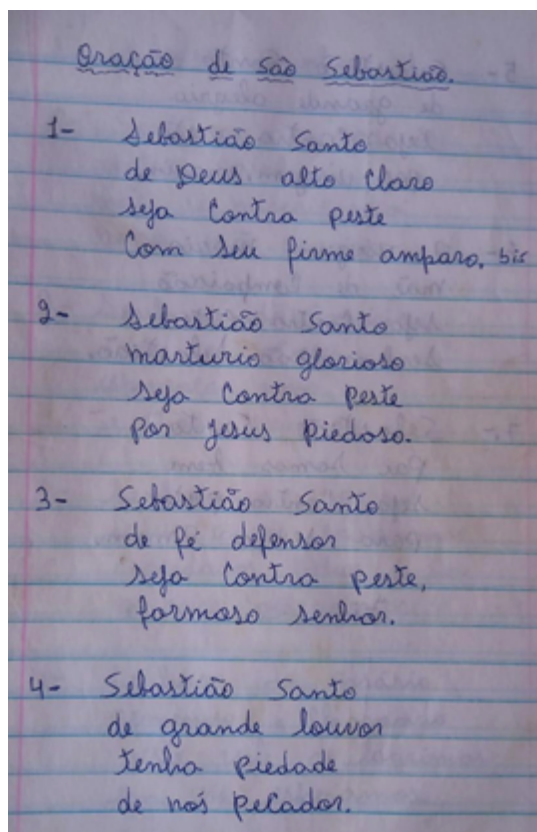 Oração de São Sebastião.
1- Sebastião Santo
de Deus alto Claro
seja Contra peste
Com seu firme amparo. bis
2- Sebastião Santo
marturio glorioso
seja Contra peste
por Jesus piedoso.
3- Sebastião Santo
de fé defensor
seja Contra peste,
formoso senhor.
4- Sebastião Santo
de grande louvor
tenha piedade
de nós pecador.